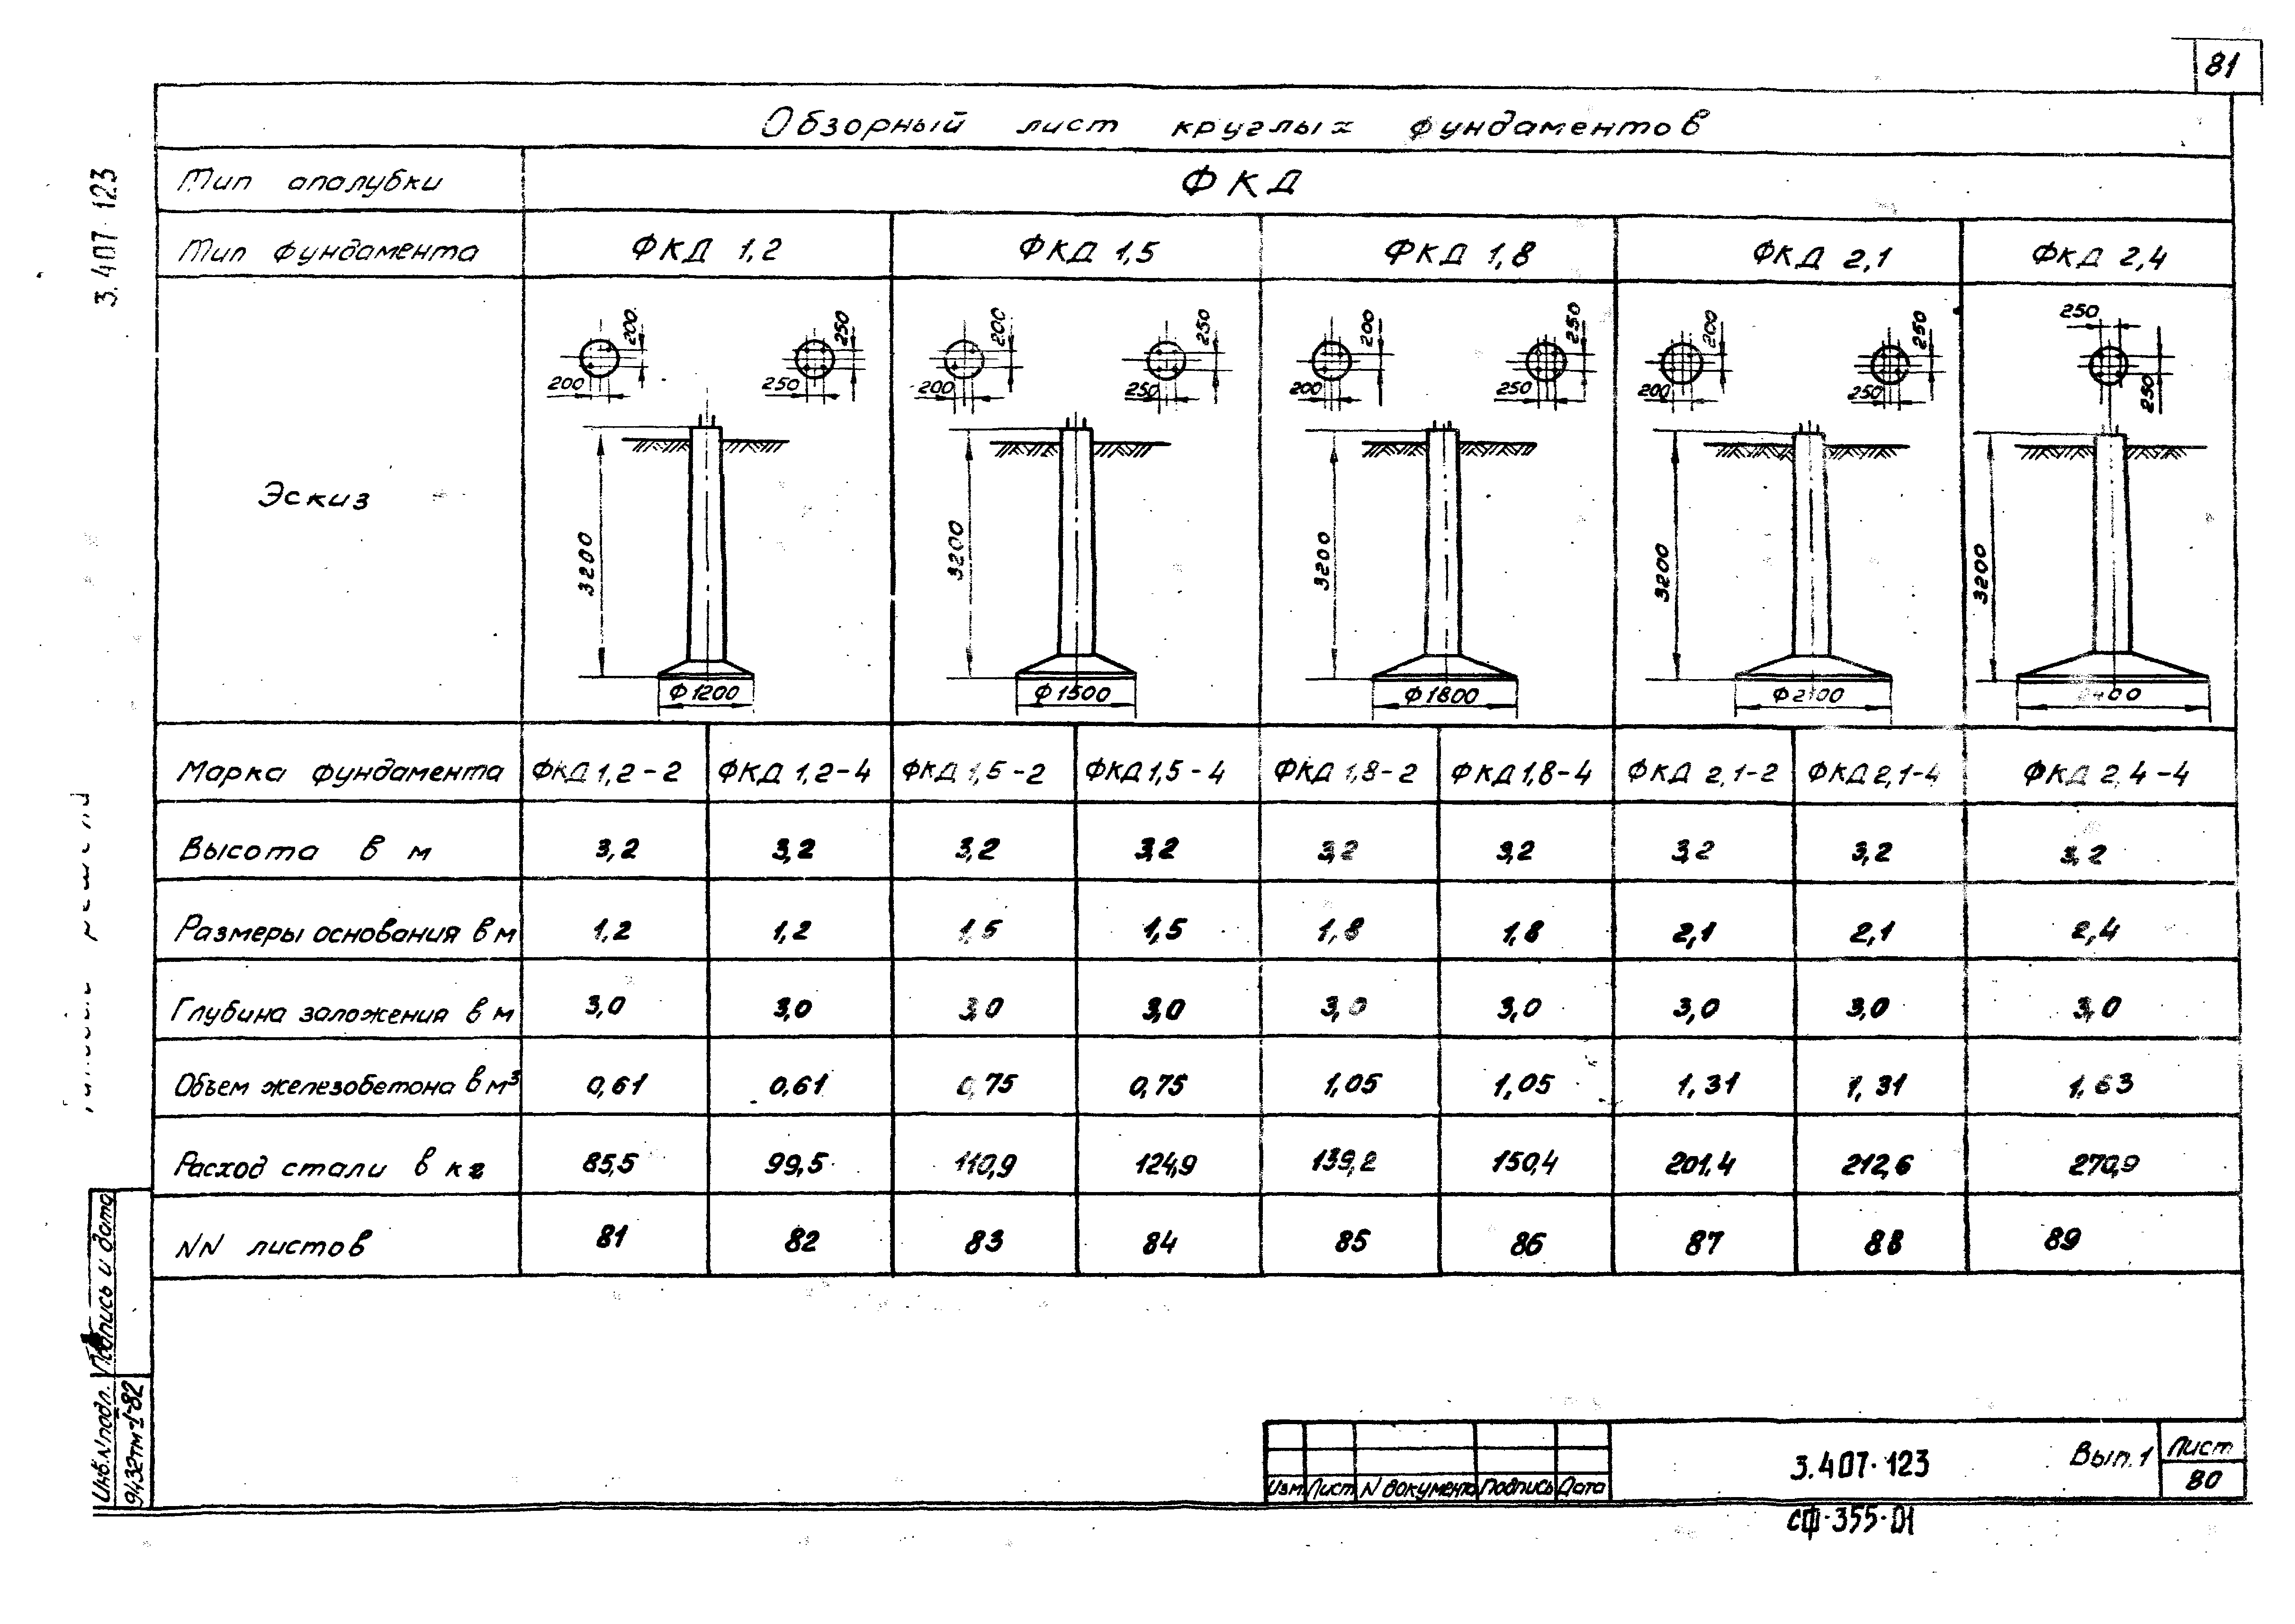 81
Обзорный лист круглых фундаментов
Тип опалубки ФКД
Тип фундамента ФКД 1,2 ФКД 1,5 ФКД 1,8 ФКД 2,1 ФКД 2,4
Эскиз
200 250 200 250 200 250 200 250 250
200 250 200 250 200 250 200 250 250
3200 3200 3200 3200 3200
Ф1200 Ф1500 Ф1800 Ф2100 2400
Марка фундамента ФКД 1,2-2 ФКД 1,2-4 ФКД 1,5-2 ФКД 1,5-4 ФКД 1,8-2 ФКД 1,8-4 ФКД 2,1-2 ФКД 2,1-4 ФКД 2,4-4
Высота в м 3,2 3,2 3,2 3,2 3,2 3,2 3,2 3,2 3,2
Размеры основания в м 1,2 1,2 1,5 1,5 1,8 1,8 2,1 2,1 2,4
Глубина заложения в м 3,0 3,0 3,0 3,0 3,0 3,0 3,0 3,0 3,0
Объем железобетона в м³ 0,61 0,61 0,75 0,75 1,05 1,05 1,31 1,31 1,63
Расход стали в кг 85,5 99,5 110,9 124,9 139,2 150,4 201,4 212,6 270,9
NN листов 81 82 83 84 85 86 87 88 89
3.407-123
Инв.N подл. Подпись и дата
9432тм-1-82
Изм Лист N документа Подпись Дата
3.407-123 Вып.1
Лист
80
СФ-355-01